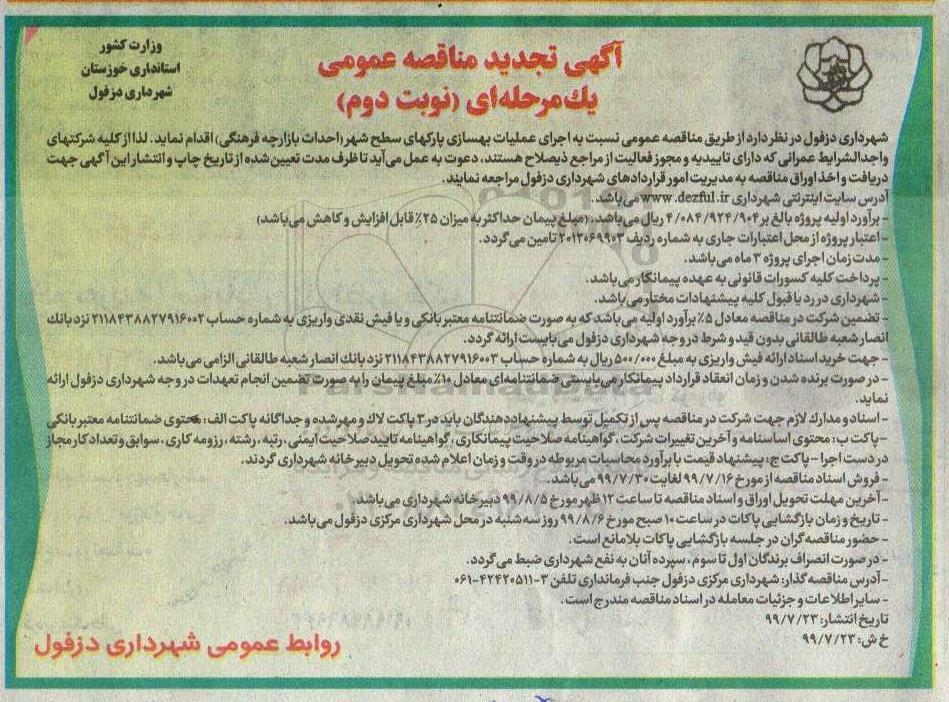 وزارت کشور
استانداری خوزستان
شهرداری دزفول
آگهی تجدید مناقصه عمومی
یك مرحله‌ای (نوبت دوم)
شهرداری دزفول در نظر دارد از طریق مناقصه عمومی نسبت به اجرای عملیات بهسازی پارکهای سطح شهر (احداث بازارچه فرهنگی) اقدام نماید. لذا از کلیه شرکتهای
واجدالشرایط عمرانی که دارای تاییدیه و مجوز فعالیت از مراجع ذیصلاح هستند، دعوت به عمل می‌آید تا ظرف مدت تعیین‌شده از تاریخ چاپ و انتشار این آگهی جهت
دریافت و اخذ اوراق مناقصه به مدیریت امور قراردادهای شهرداری دزفول مراجعه نمایند.
آدرس سایت اینترنتی شهرداری www.dezful.ir می‌باشد.
- برآورد اولیه پروژه بالغ بر ۴/۰۸۴/۹۲۴/۹۰۴ ریال می‌باشد. (مبلغ پیمان حداکثر به میزان ۲۵٪ قابل افزایش و کاهش می‌باشد)
- اعتبار پروژه از محل اعتبارات جاری به شماره ردیف ۲۰۱۳۰۶۹۹۰۳ تامین می‌گردد.
- مدت زمان اجرای پروژه ۳ ماه می‌باشد.
- پرداخت کلیه کسورات قانونی به عهده پیمانکار می‌باشد.
- شهرداری در رد یا قبول کلیه پیشنهادات مختار می‌باشد.
- تضمین شرکت در مناقصه معادل ۵٪ برآورد اولیه می‌باشد که به صورت ضمانتنامه معتبر بانکی و یا فیش نقدی واریزی به شماره حساب ۲۱۱۸۴۳۸۸۲۷۹۱۶۰۰۲ نزد بانك
انصار شعبه طالقانی بدون قید و شرط در وجه شهرداری دزفول می‌بایست ارائه گردد.
- جهت خرید اسناد ارائه فیش واریزی به مبلغ ۵۰۰/۰۰۰ ریال به شماره حساب ۲۱۱۸۴۳۸۸۲۷۹۱۶۰۰۳ نزد بانك انصار شعبه طالقانی الزامی می‌باشد.
- در صورت برنده شدن و زمان انعقاد قرارداد پیمانکار می‌بایستی ضمانتنامه‌ای معادل ۱۰٪ مبلغ پیمان را به صورت تضمین انجام تعهدات در وجه شهرداری دزفول ارائه
نماید.
- اسناد و مدارك لازم جهت شرکت در مناقصه پس از تکمیل توسط پیشنهاددهندگان باید در ۳ پاکت لاك و مهر شده و جداگانه پاکت الف: محتوی ضمانتنامه معتبر بانکی
- پاکت ب: محتوی اساسنامه و آخرین تغییرات شرکت، گواهینامه صلاحیت پیمانکاری، گواهینامه تایید صلاحیت ایمنی، رتبه، رشته، رزومه کاری، سوابق و تعداد کار مجاز
در دست اجرا - پاکت ج: پیشنهاد قیمت با برآورد محاسبات مربوطه در وقت و زمان اعلام شده تحویل دبیرخانه شهرداری گردند.
- فروش اسناد مناقصه از مورخ ۹۹/۷/۱۶ لغایت ۹۹/۷/۳۰ می‌باشد.
- آخرین مهلت تحویل اوراق و اسناد مناقصه تا ساعت ۱۲ ظهر مورخ ۹۹/۸/۵ دبیرخانه شهرداری می‌باشد.
- تاریخ و زمان بازگشایی پاکات در ساعت ۱۰ صبح مورخ ۹۹/۸/۶ روز سه شنبه در محل شهرداری مرکزی دزفول می‌باشد.
- حضور مناقصه‌گران در جلسه بازگشایی پاکات بلامانع است.
- در صورت انصراف برندگان اول تا سوم، سپرده آنان به نفع شهرداری ضبط می‌گردد.
- آدرس مناقصه گذار: شهرداری مرکزی دزفول جنب فرمانداری تلفن ۳-۴۲۴۲۰۵۱۱-۰۶۱
- سایر اطلاعات و جزئیات معامله در اسناد مناقصه مندرج است.
تاریخ انتشار: ۹۹/۷/۲۳
خ ش: ۹۹/۷/۲۳
روابط عمومی شهرداری دزفول